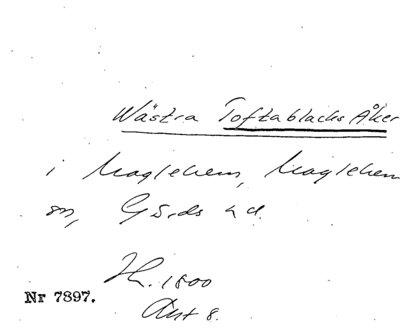 Wästra Toftablacks Åker
i Maglehem, Maglehem
sn, Gärds hd.
H. 1800
Akt 8.
Nr 7897.